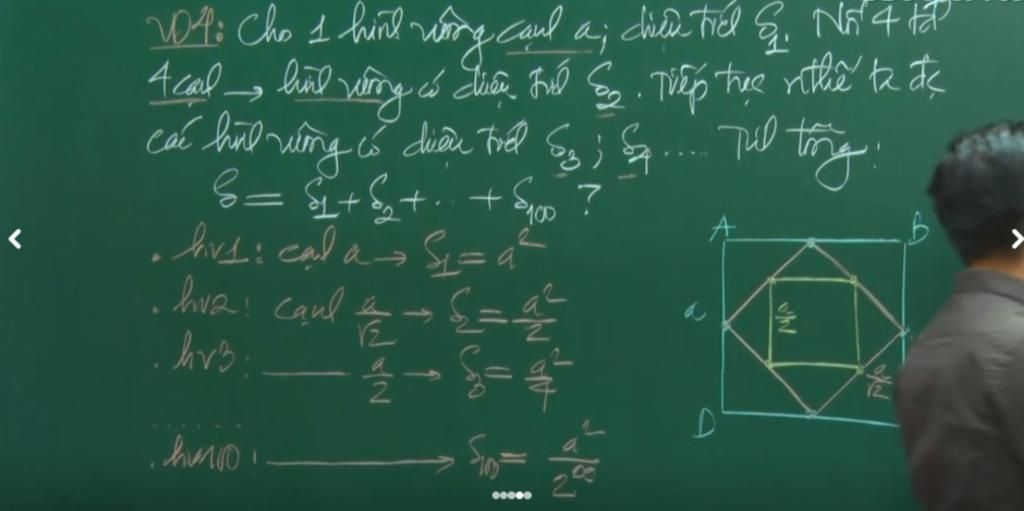 VD4: Cho 1 hình vuông cạnh a; diện tích S₁. Nối 4 tđ
4 cạnh → hình vuông có diện tích S₂. Tiếp tục như thế ta đc
các hình vuông có diện tích S₃; S₄ .... Tính tổng:
S = S₁ + S₂ + ... + S₁₀₀ ?
. hv1: cạnh a → S₁ = a²
. hv2: cạnh a/√2 → S₂ = a²/2
. hv3: —— a/2 → S₃ = a²/4
......
. hv100: ——→ S₁₀₀ =
A B
a
a/2
a/√2
D